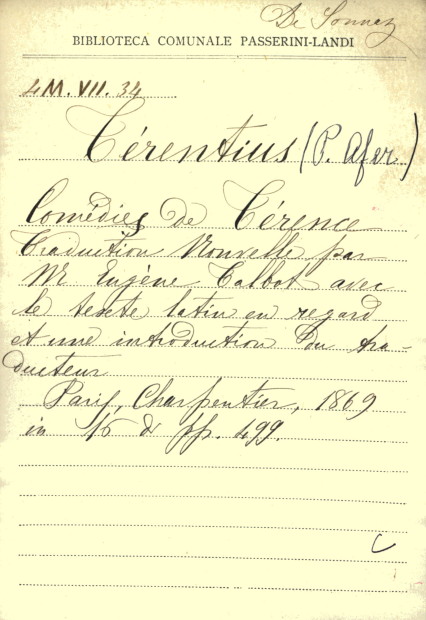 De Sonnaz
BIBLIOTECA COMUNALE PASSERINI-LANDI
4M.VII.34
Térentius (P. Afer)
Comédies de Térence
Traduction Nouvelle par
Mr Eugène Talbot avec
le texte latin en regard
et une introduction du tra-
ducteur
Paris, Charpentier, 1869
in 16 d pp. 499.
C